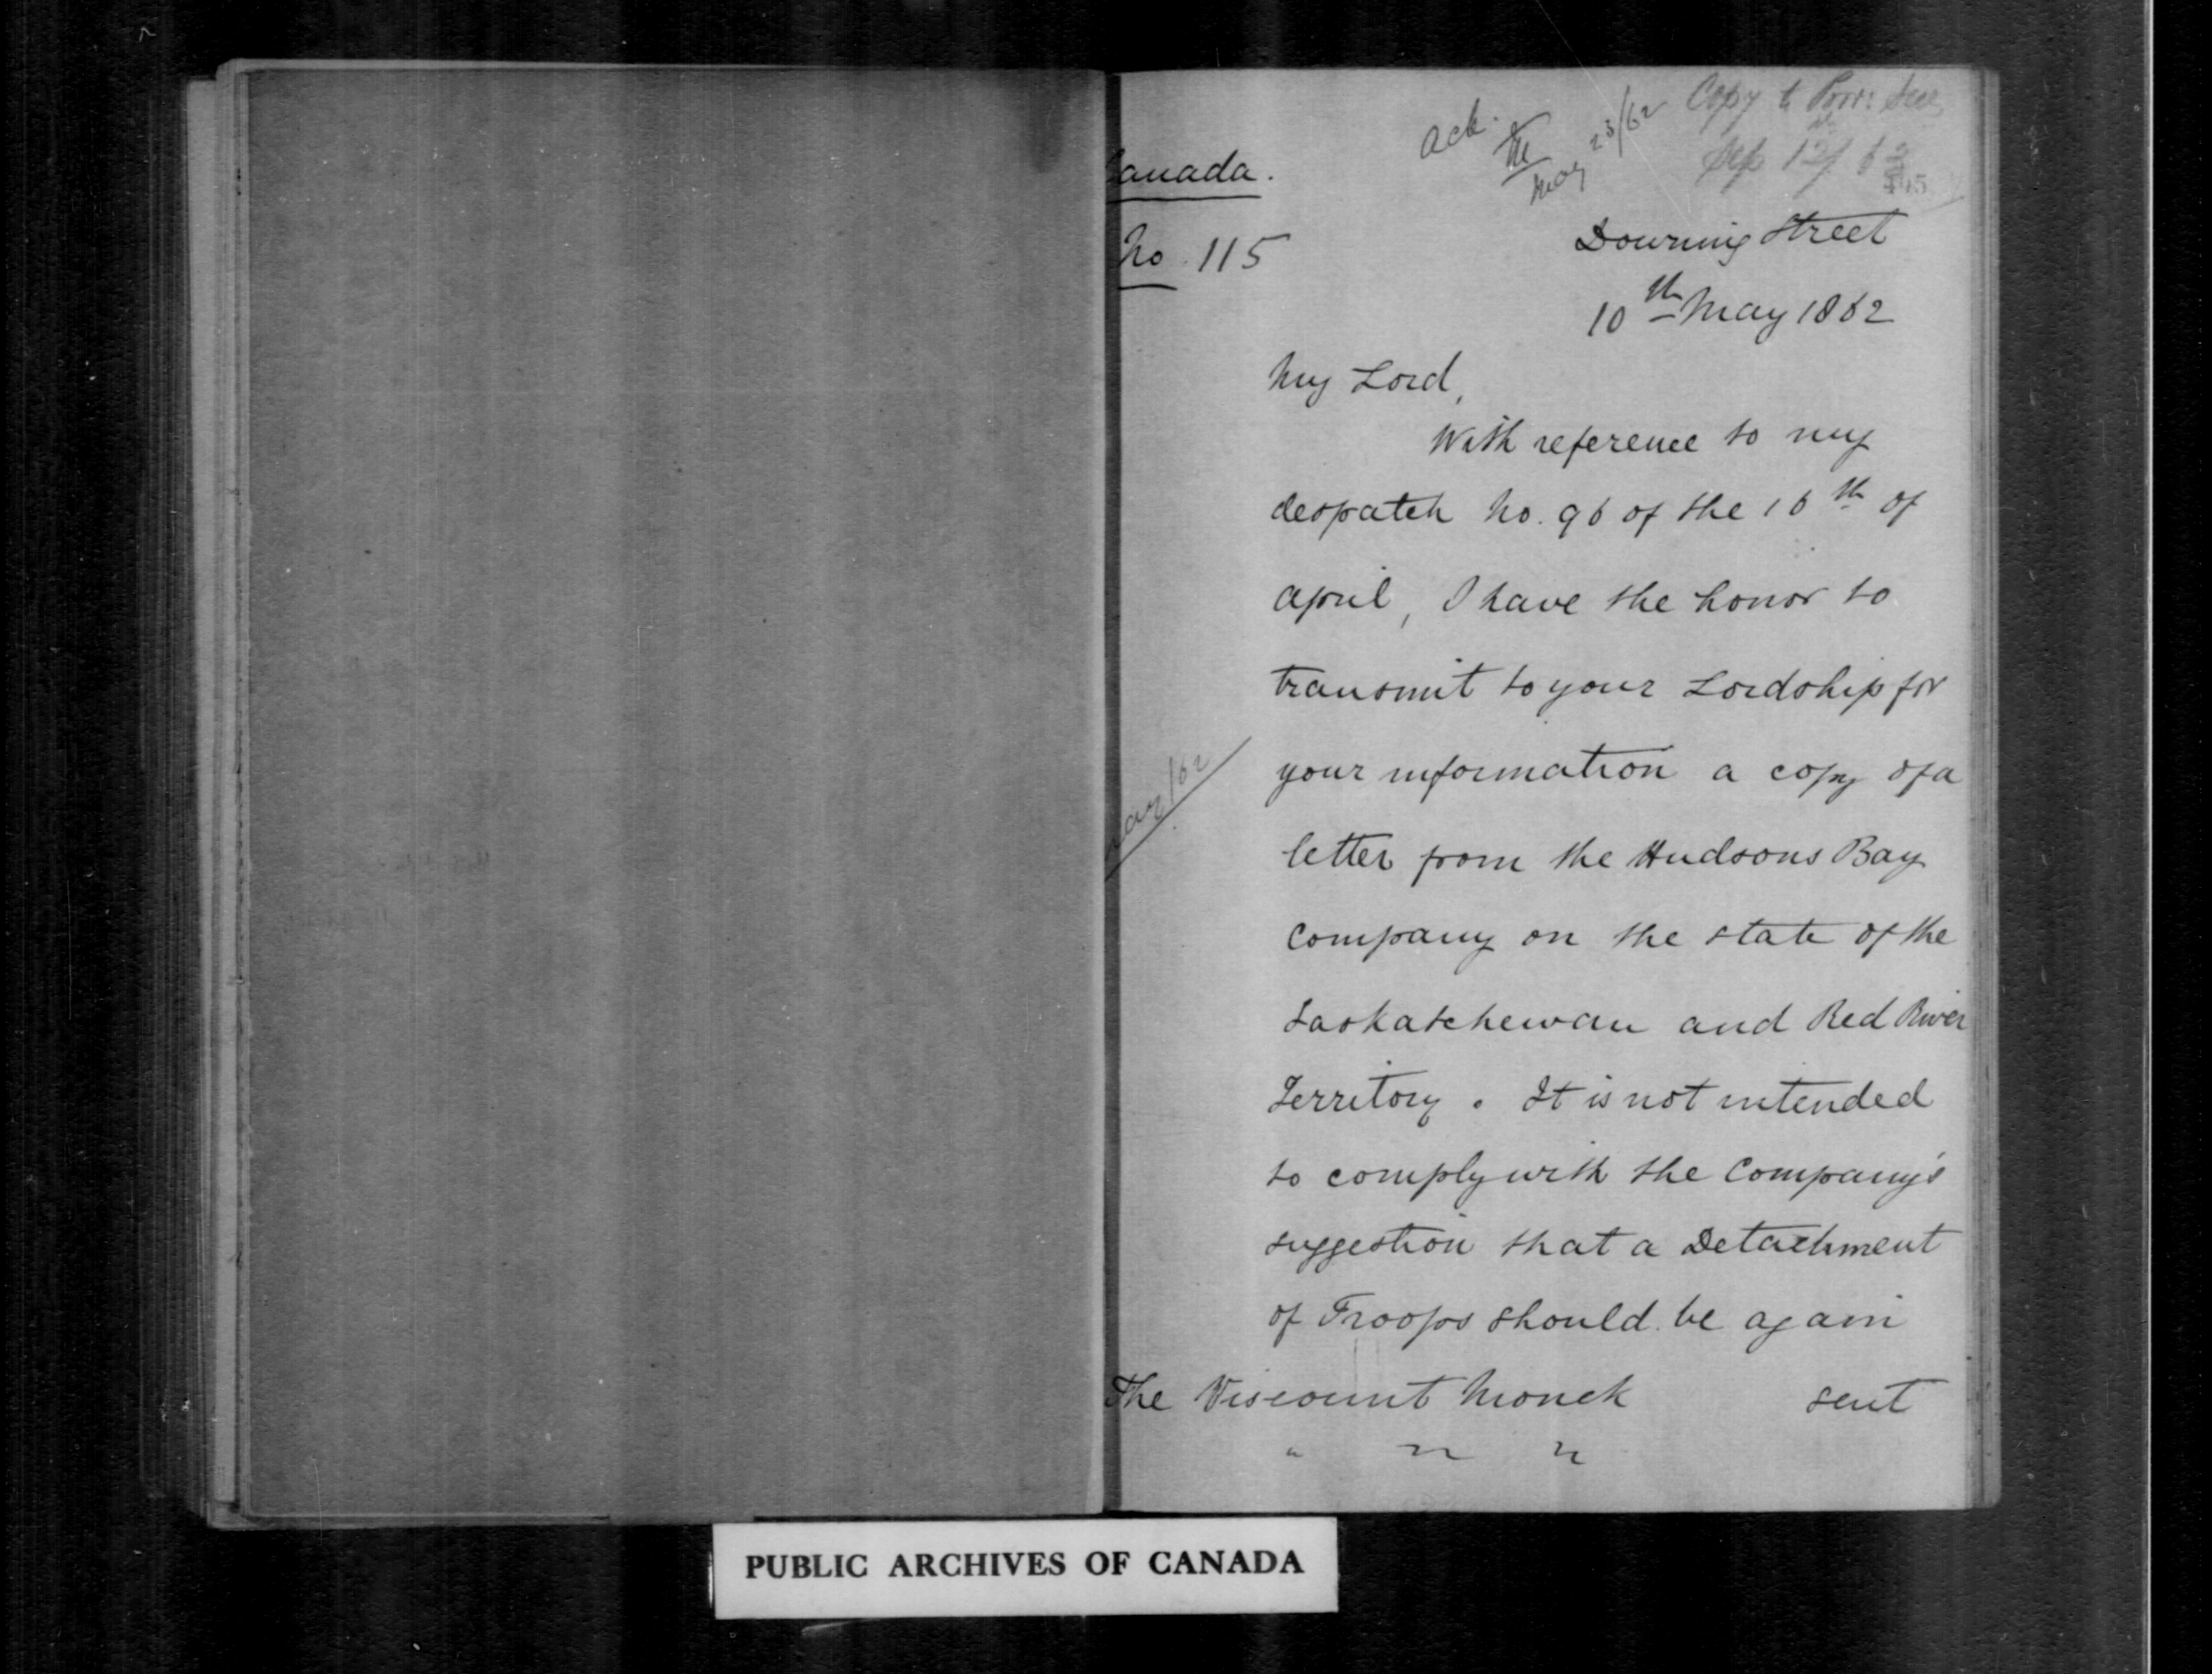 Copy to Prov: Sec
Ack.
May 23/62
Sep 12/62
Canada.
No. 115
Downing Street
10th May 1862
My Lord,
With reference to my
despatch No. 96 of the 16th of
April, I have the honor to
transmit to your Lordship for
your information a copy of a
letter from the Hudsons Bay
Company on the state of the
Saskatchewan and Red River
Territory. It is not intended
to comply with the Company's
suggestion that a Detachment
of Troops should be again
The Viscount Monck sent
" " "
PUBLIC ARCHIVES OF CANADA